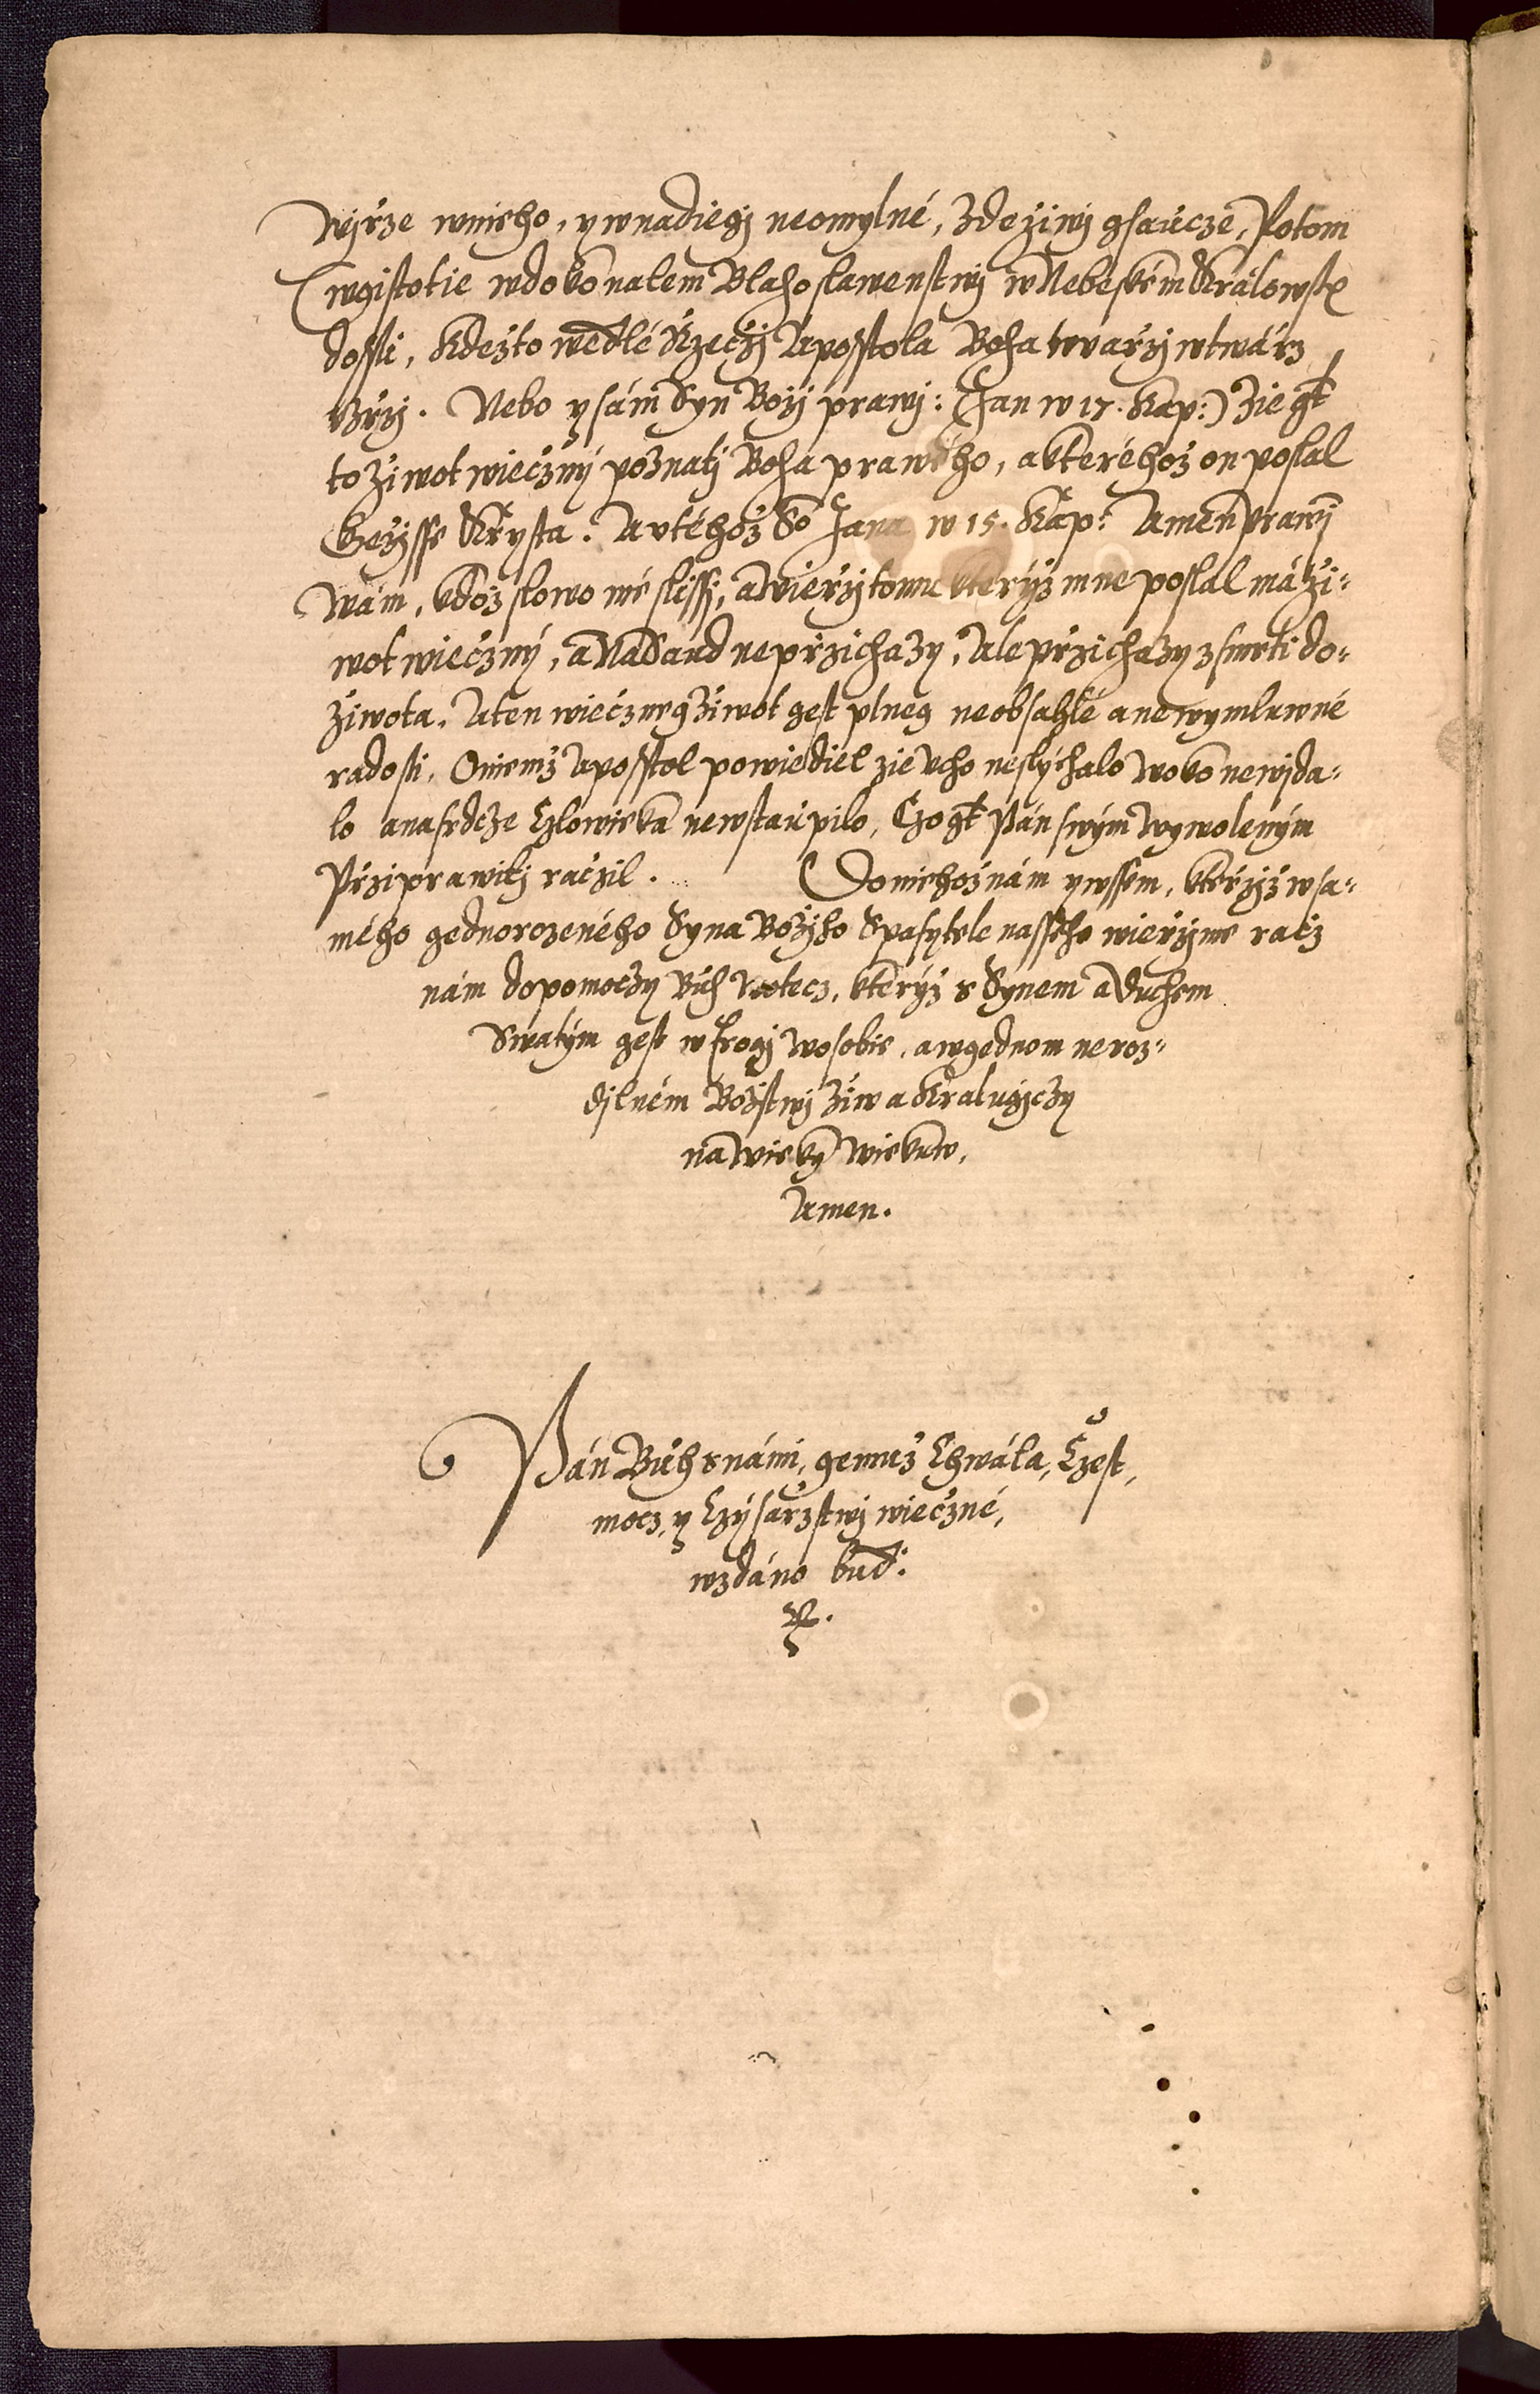 Wjrze wnieho, y w nadiegj neomylné, zde ziwj gsaucze, Potom
w gistotie w dokonalem Blahoslawenstwj w Nebeském Kralowstw
dossli, Kdezto wedlé Rzeczy Aposstola Boha twarzy w twárz
vzrzy. Nebo y sám Syn Bozy prawj: (Jan w 17. Kap:) Zie gt
to ziwot wieczny poznatj Boha prawého, a kteréhoz on poslal
Gezysse Krysta. A v téhoz So Jana w 15. Kap: Amen prawj
Wám, kdoz slowo mé slissy, a wierzy tomu kteryz mne poslal má zi-
wot wieczny, a na Saud neprzichazy, Ale przichazy z smrti do-
ziwota. A ten wiecznyg ziwot gest plneg neobsahlé a newymluwné
radosti, O niemz Aposstol powiediel zie vcho neslychalo woko newjda-
lo a na srdcze Czlowieka newstaupilo, Czo gt Pán swym wywolenym
Prziprawitj raczil. Do niehoz nám y wssem, kterzyz w sa-
mého gednorozeného Syna Bozyho Spasytele nasseho wierzyme racz
nám dopomoczy Buh Wotecz, kteryz s Synem a Duchem
Swatym gest w trogj wosobie, a w gednom neroz-
djlném Bozstwj ziw a Kralugiczy
na wieky wiekuw,
Amen.
Pán Buh s námi, gemuz Chwála, Czest,
mocz, y Czysarzstwj wieczné,
wzdáno bud: